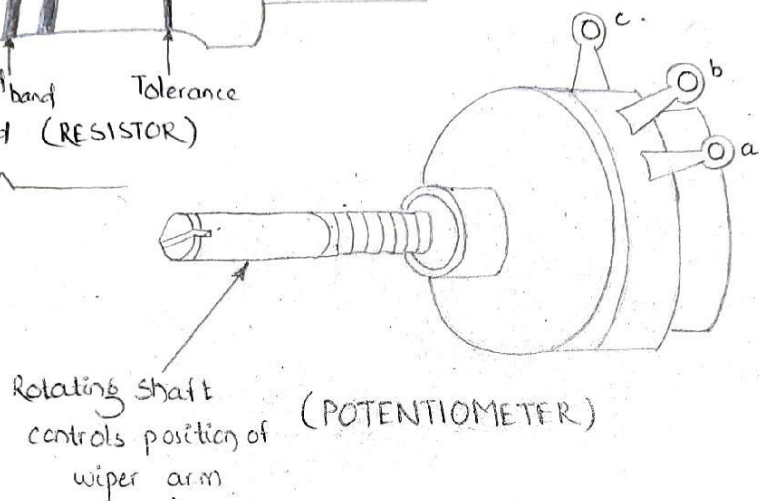 c.
b
a
band
Tolerance
(RESISTOR)
Rotating shaft
controls position of
wiper arm
(POTENTIOMETER)